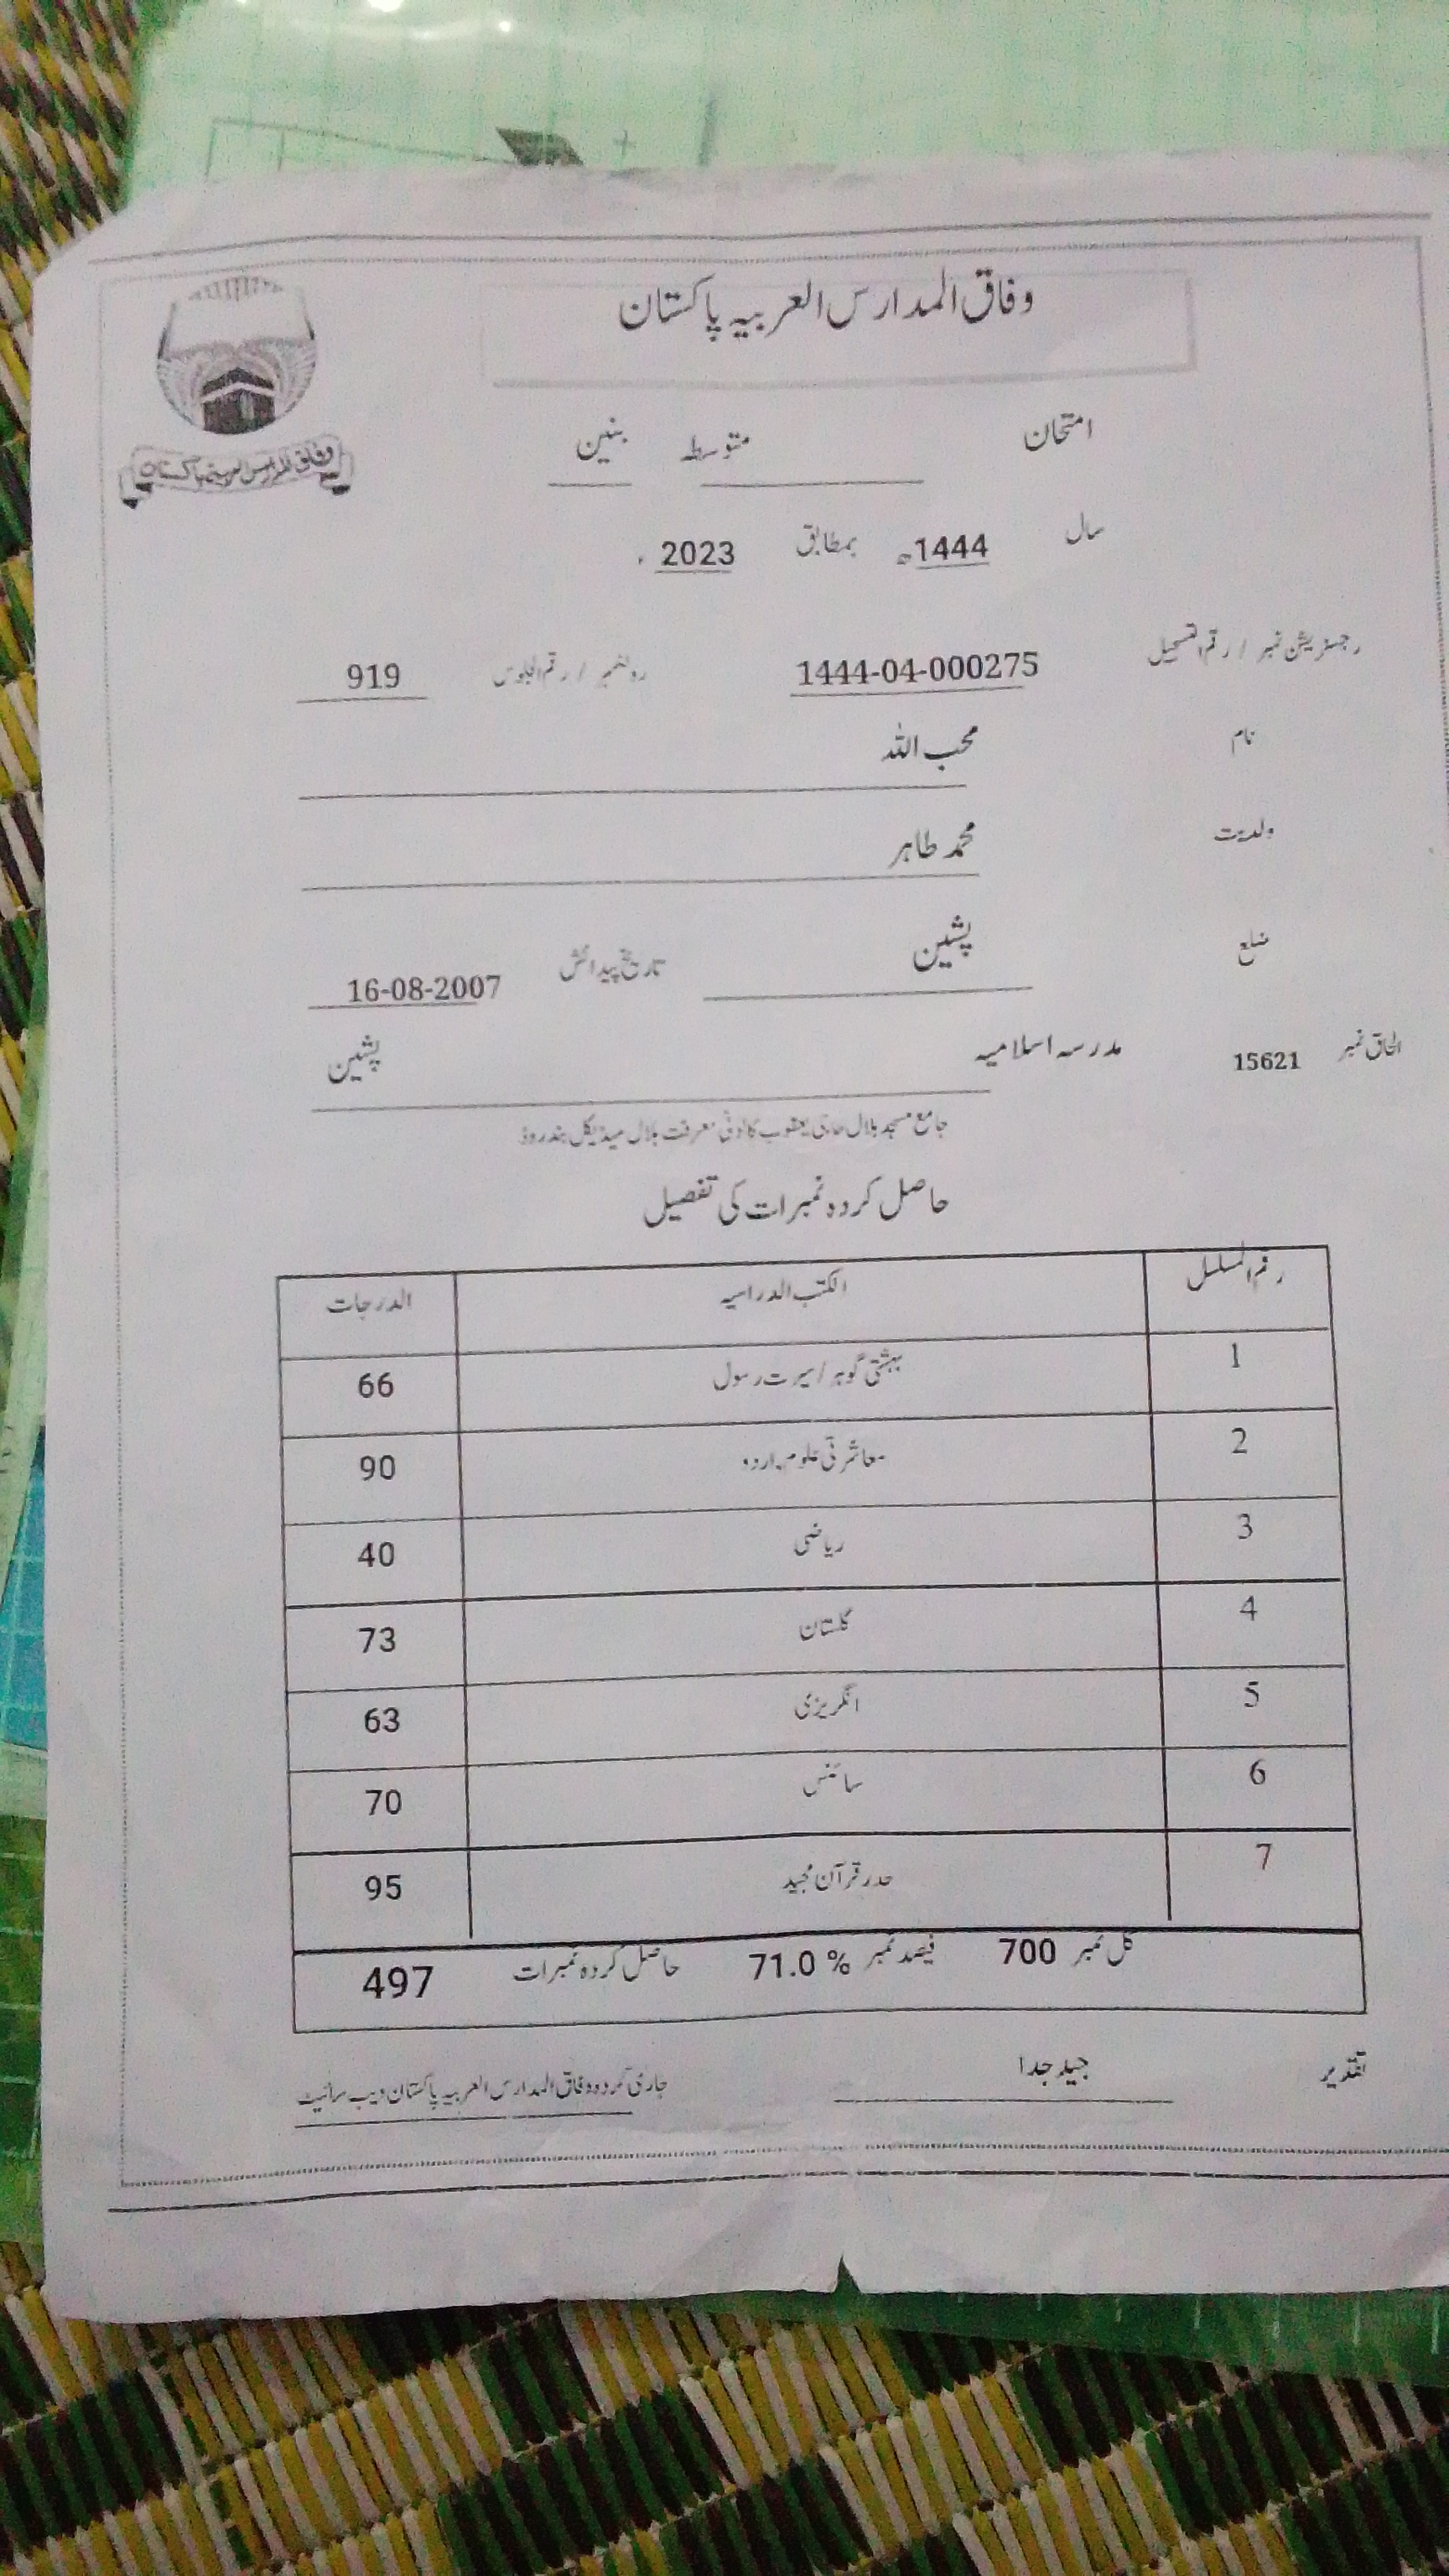 وفاق المدارس العربیہ پاکستان
وفاق المدارس العربیہ پاکستان
امتحان متوسطہ بنین
سال 1444ھ بمطابق 2023ء
رجسٹریشن نمبر / رقم التسجیل 1444-04-000275 رولنمبر / رقم الجلوس 919
نام محب اللہ
ولدیت محمد طاہر
ضلع پشین تاریخ پیدائش 16-08-2007
الحاق نمبر 15621 مدرسہ اسلامیہ پشین
جامع مسجد بلال حاجی یعقوب کالونی معرفت بلال میڈیکل بند روڈ
حاصل کردہ نمبرات کی تفصیل
رقم المسلسل الکتب الدراسیہ الدرجات
1 بہشتی گوہر / سیرت رسول 66
2 معاشرتی علوم،اردو 90
3 ریاضی 40
4 گلستان 73
5 انگریزی 63
6 سائنس 70
7 حدر قرآن مجید 95
کل نمبر 700 فیصد نمبر 71.0 % حاصل کردہ نمبرات 497
تقدیر جید جدا جاری کردہ وفاق المدارس العربیہ پاکستان ویب سائیٹ